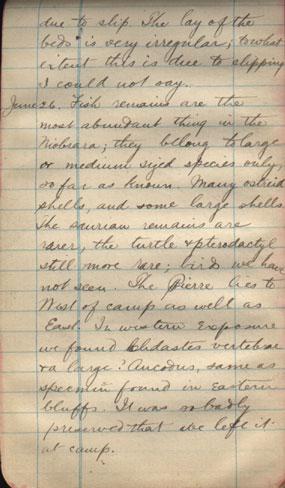 due to slip. The lay of the
beds is very irregular, to what
extent this is due to slipping
I could not say.
June 26. Fish remains are the
most abundant thing in the
Niobrara; they belong to large
or medium sized species only,
so far as known. Many ostreid
shells, and some large shells.
The saurian remains are
rarer, the turtle & pterodactyl
still more rare; bird we have
not seen. The Pierre lies to
West of camp as well as
East. In western exposure
we found Clidastes vertebrae
& a large? Ancodus, same as
specimen found in Eastern
bluffs. It was so badly
preserved that we left it
at camp.